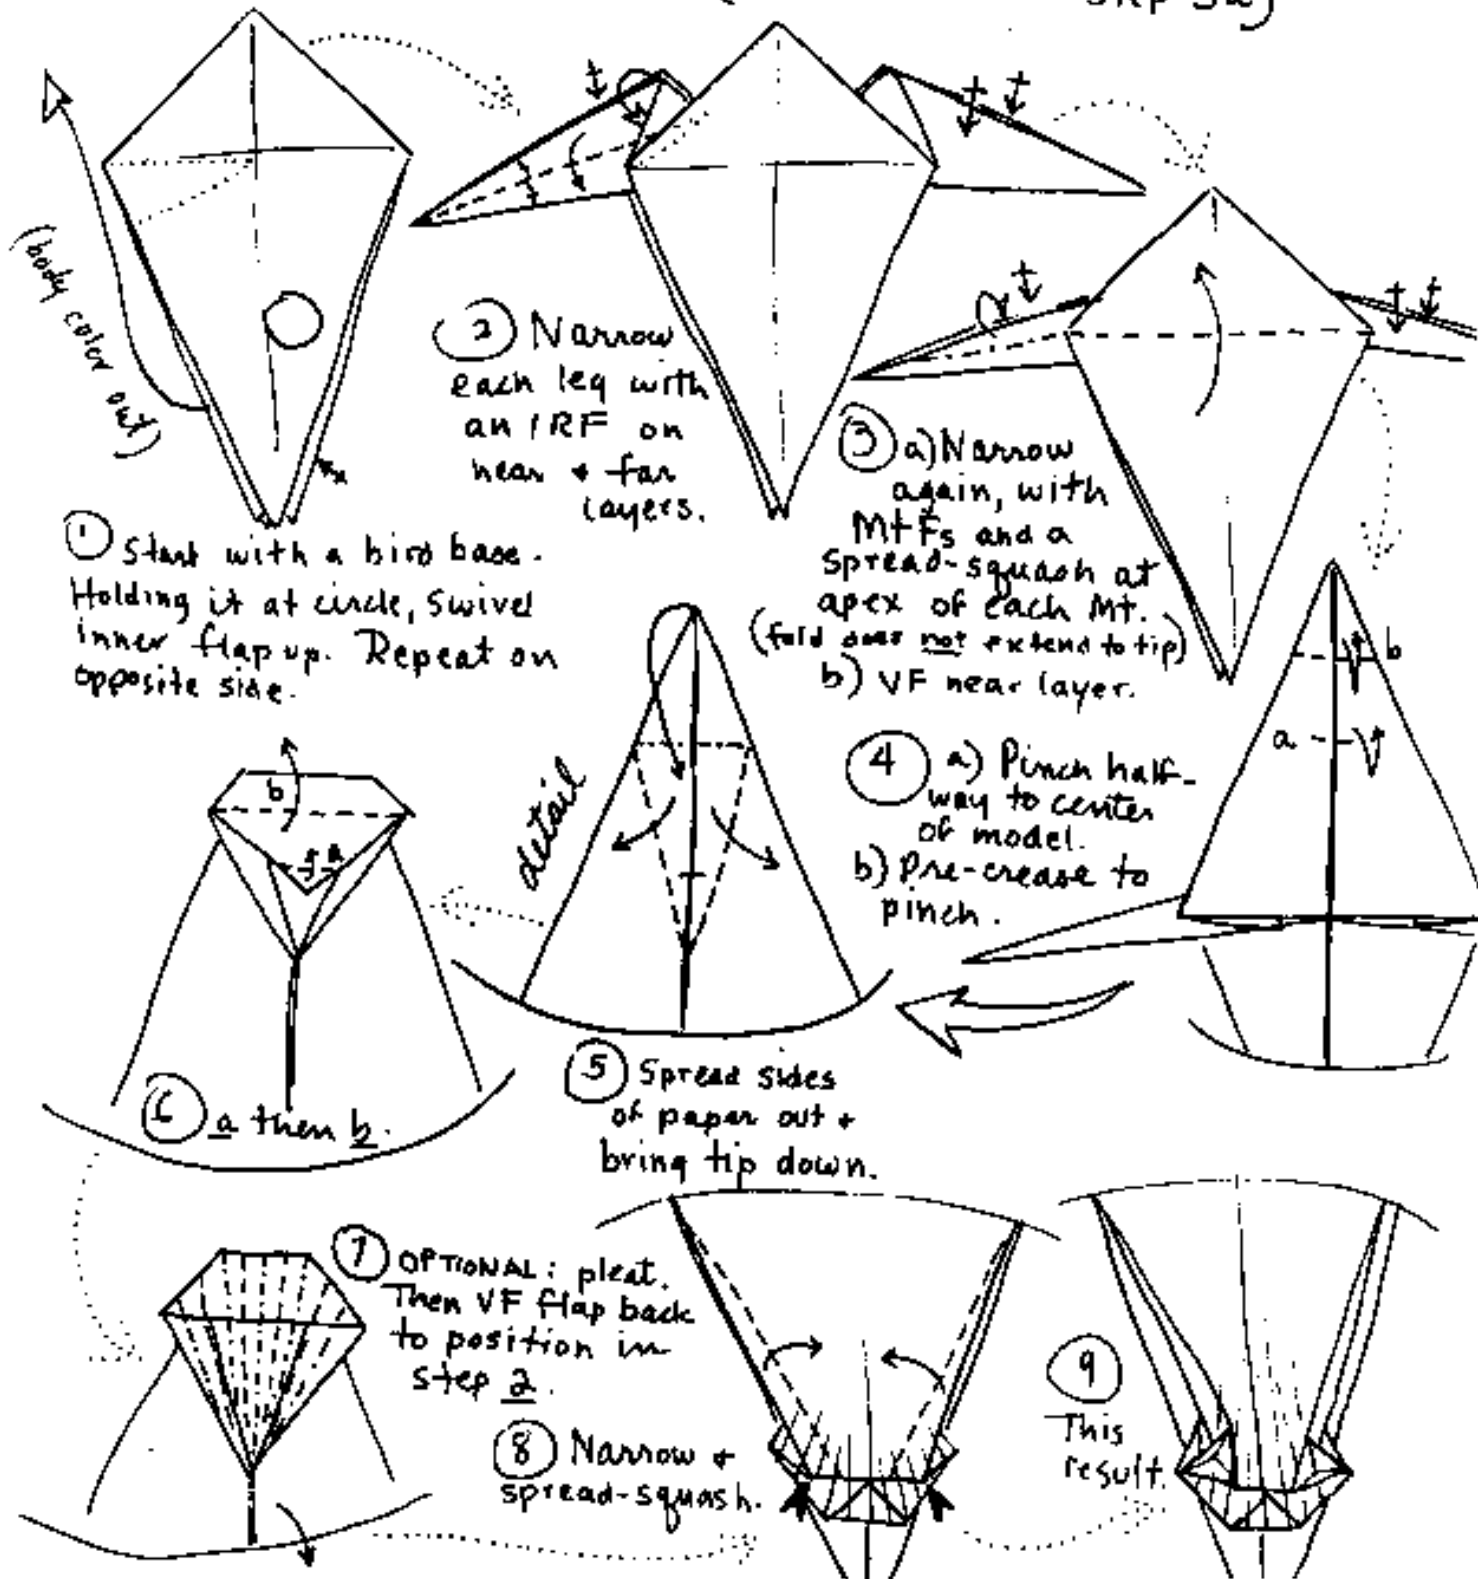 step
(body color out)
① Start with a bird base.
Holding it at circle, swivel
inner flap up. Repeat on
opposite side.
② Narrow
each leg with
an IRF on
near + far
layers.
③ a) Narrow
again, with
MtFs and a
spread-squash at
apex of each Mt.
(fold does not extend to tip)
b) VF near layer.
b
a
④ a) Pinch half-
way to center
of model.
b) Pre-crease to
pinch.
detail
⑤ Spread sides
of paper out +
bring tip down.
b
a
⑥ a then b.
⑦ OPTIONAL: pleat.
Then VF flap back
to position in
step 2.
⑧ Narrow +
spread-squash.
⑨
This
result.